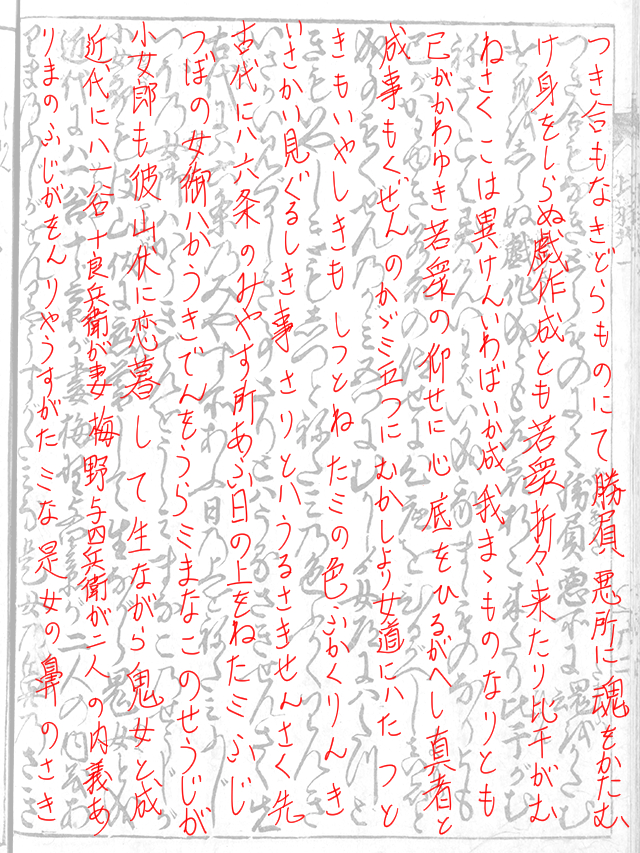 つき合もなきどらものにて勝負悪所に魂をかたむ
け身をしらぬ戯作成とも若衆折々来たり比干がむ
ねさくこは異けんいわばいか成我まゝものなりとも
己がかわゆき若衆の仰せに心底をひるがへし真者と
成事もぐぜんのかゞミ五つにむかしより女道にハたつと
きもいやしきもしつとねたミの色ふかくりんき
いさかい見ぐるしき事さりとハうるさきせんさく先
古代にハ六条のみやす所あふ日の上をねたミふじ
つぼの女御ハかうきでんをうらミまなこのせうじが
小女郎も彼山伏に恋暮して生ながら鬼女と成
近代にハ一谷十良兵衛が妻梅野与四兵衛が二人の内義あ
りまのふじがをんりやうすがたミな是女の鼻のさき